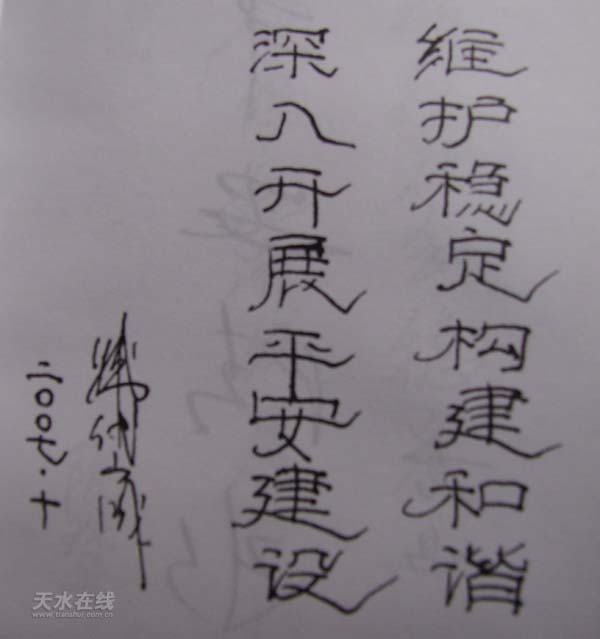 维护稳定构建和谐
深入开展平安建设
二00七.十
天水在线
www.tianshui.com.cn